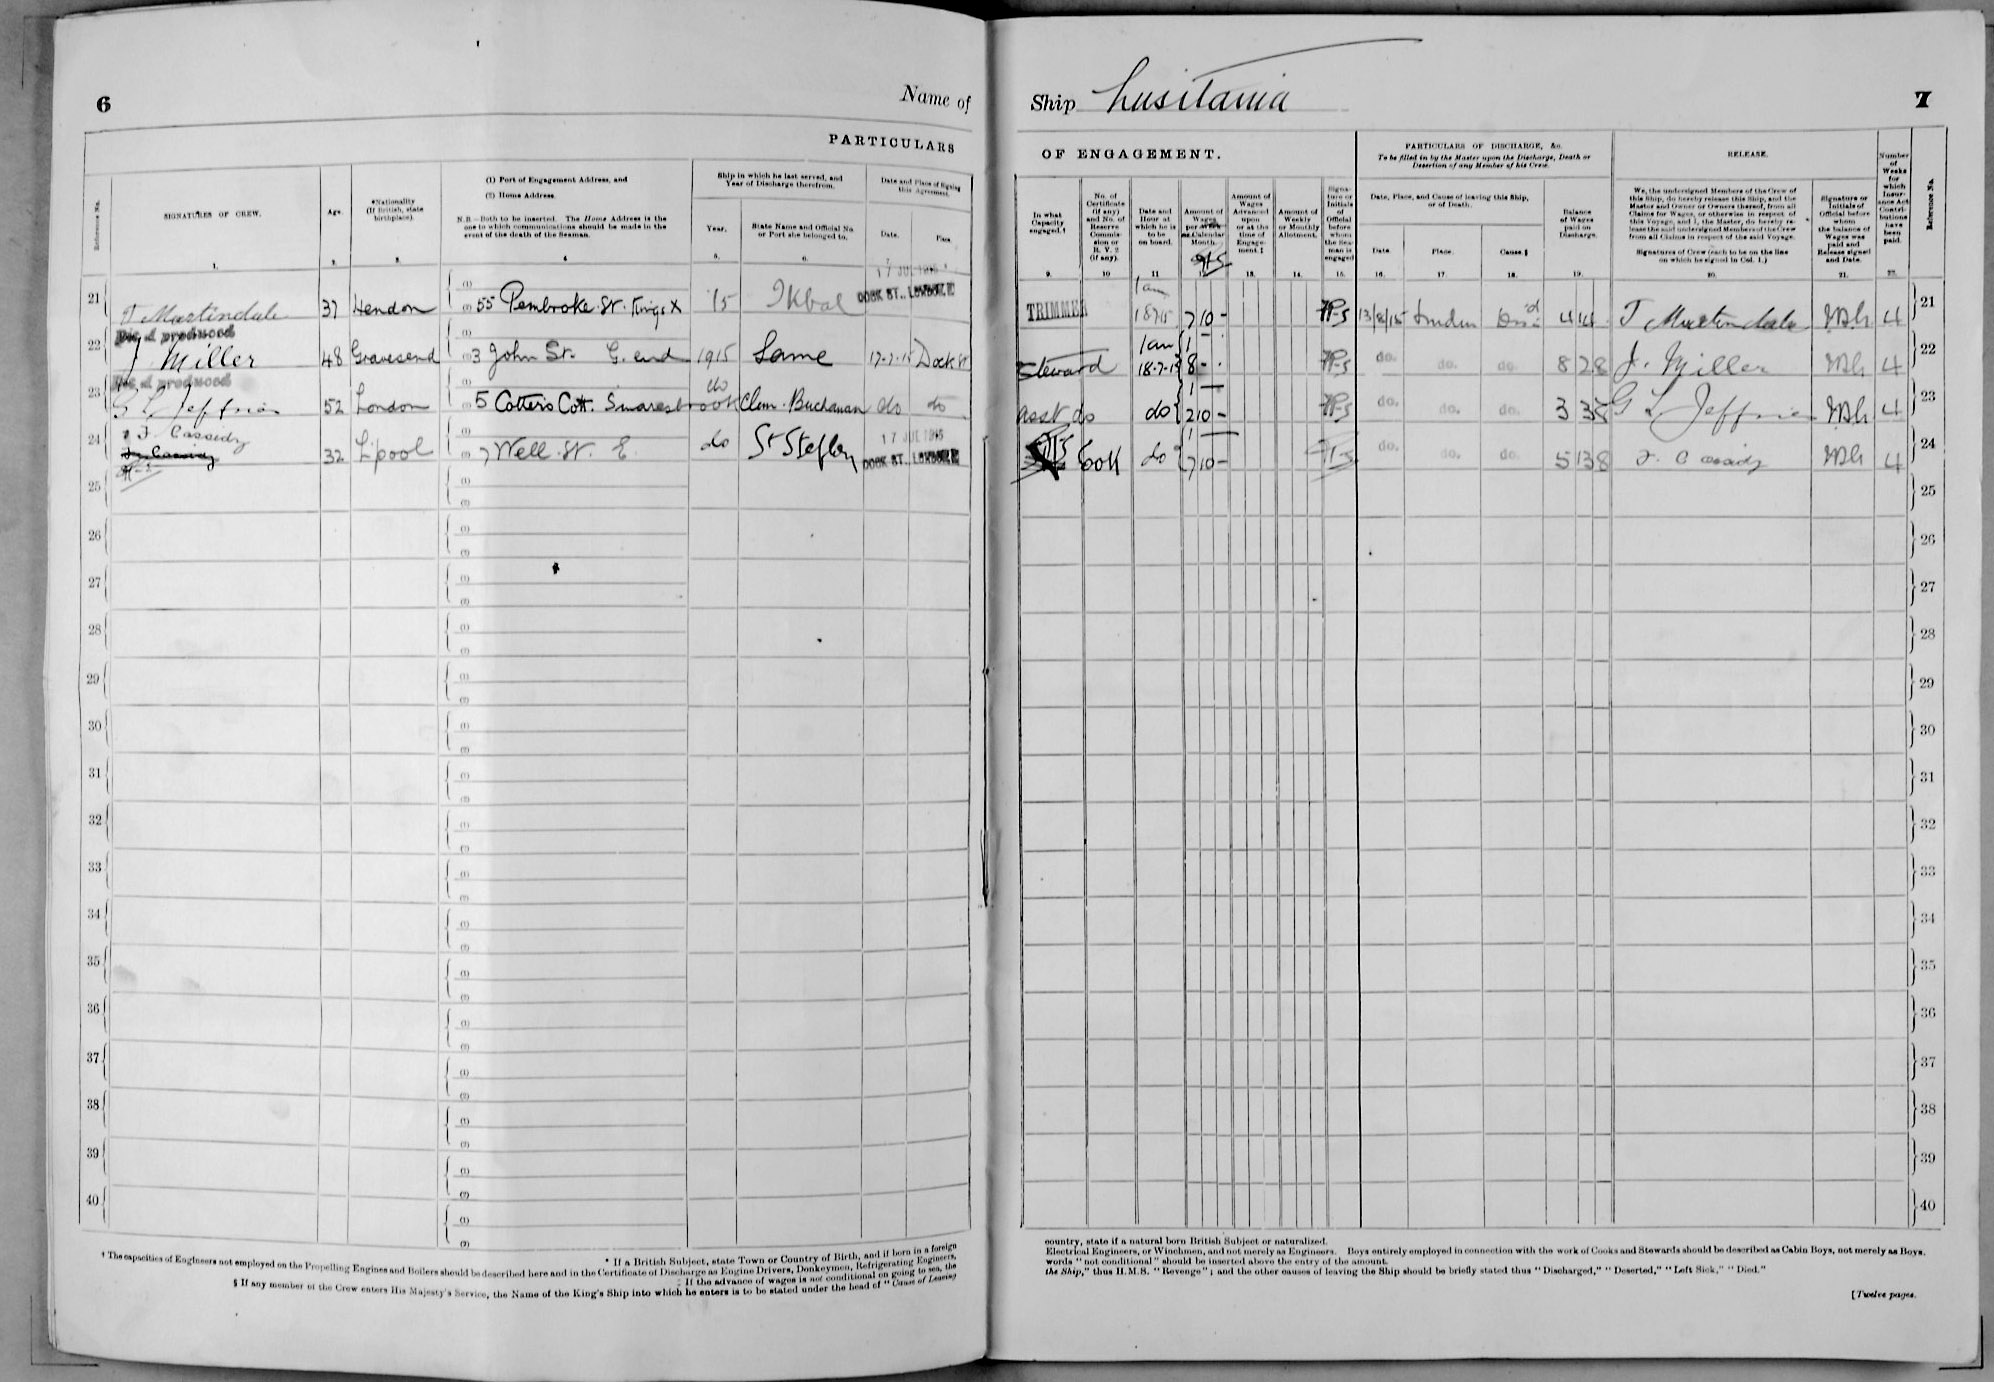 6
Name of
PARTICULARS
Reference No.
SIGNATURES OF CREW.
Age.
*Nationality
(If British, state
birthplace).
(1) Port of Engagement Address, and
(2) Home Address.
N.B.—Both to be inserted. The Home Address is the
one to which communications should be made in the
event of the death of the Seaman.
Ship in which he last served, and
Year of Discharge therefrom.
Year.
State Name and Official No.
or Port she belonged to.
Date and Place of Signing
this Agreement.
Date.
Place.
1. 2. 3. 4. 5. 6.
21 T Martindale 37 Hendon (1) (2) 55 Pembroke St. Kings X '15 Ikbal 17 JUL 1915 DOCK ST., LONDON E
Dis. A produced
22 J Miller 48 Gravesend (1) (2) 3 John St. G. end 1915 Same 17-7-15 Dock St
Dis. A produced
23 G L Jeffries 52 London (1) (2) 5 Cotters Cott. Snaresbrook do Clan Buchanan do do
24 F. Cassidy 32 L'pool (1) (2) 7 Well St. E. do St Steffen 17 JUL 1915 DOCK ST., LONDON E
25 (1) (2)
26 (1) (2)
27 (1) (2)
28 (1) (2)
29 (1) (2)
30 (1) (2)
31 (1) (2)
32 (1) (2)
33 (1) (2)
34 (1) (2)
35 (1) (2)
36 (1) (2)
37 (1) (2)
38 (1) (2)
39 (1) (2)
40 (1) (2)
* If a British Subject, state Town or Country of Birth, and if born in a foreign
† The capacities of Engineers not employed on the Propelling Engines and Boilers should be described here and in the Certificate of Discharge as Engine Drivers, Donkeymen, Refrigerating Engineers,
‡ If the advance of wages is not conditional on going to sea, the
§ If any member of the Crew enters His Majesty's Service, the Name of the King's Ship into which he enters is to be stated under the head of "Cause of Leaving
Ship Lusitania
7
OF ENGAGEMENT.
PARTICULARS OF DISCHARGE, &c.
To be filled in by the Master upon the Discharge, Death or
Desertion of any Member of his Crew.
RELEASE.
In what
Capacity
engaged.†
No. of
Certificate
(if any)
and No. of
Reserve
Commis-
sion or
R. V. 2
(if any).
Date and
Hour at
which he is
to be
on board.
Amount of
Wages
per Week
or Calendar
Month.
Amount of
Wages
Advanced
upon
or at the
time of
Engage-
ment.‡
Amount of
Weekly
or Monthly
Allotment.
Signa-
ture or
Initials
of
Official
before
whom
the Sea-
man is
engaged
Date, Place, and Cause of leaving this Ship,
or of Death.
Date.
Place.
Cause.§
Balance
of Wages
paid on
Discharge.
We, the undersigned Members of the Crew of
this Ship, do hereby release this Ship, and the
Master and Owner or Owners thereof, from all
Claims for Wages, or otherwise in respect of
this Voyage, and I, the Master, do hereby re-
lease the said undersigned Members of the Crew
from all Claims in respect of the said Voyage.
Signatures of Crew (each to be on the line
on which he signed in Col. 1.)
Signature or
Initials of
Official before
whom
the balance of
Wages was
paid and
Release signed
and Date.
Number
of
Weeks
for
which
Insur-
ance Act
Contri-
butions
have
been
paid.
Reference No.
9. 10 11 13. 14. 15. 16. 17. 18. 19. 20. 21. 22.
TRIMMER 1am 18 7 15 7 10 - 13/8/15 London Dis'd 4 14 T Martindale 4 21
Steward 1am 18-7-15 8 - - do. do. do. 8 2 8 J. Miller 4 22
asst do do 2 10 - do. do. do. 3 3 8 G L Jeffries 4 23
Cook do 7 10 - do. do. do. 5 13 8 F. Cassidy 4 24
25
26
27
28
29
30
31
32
33
34
35
36
37
38
39
40
country, state if a natural born British Subject or naturalized.
Electrical Engineers, or Winchmen, and not merely as Engineers. Boys entirely employed in connection with the work of Cooks and Stewards should be described as Cabin Boys, not merely as Boys.
words "not conditional" should be inserted above the entry of the amount.
the Ship," thus H.M.S. "Revenge"; and the other causes of leaving the Ship should be briefly stated thus "Discharged," "Deserted," "Left Sick," "Died."
[Twelve pages.